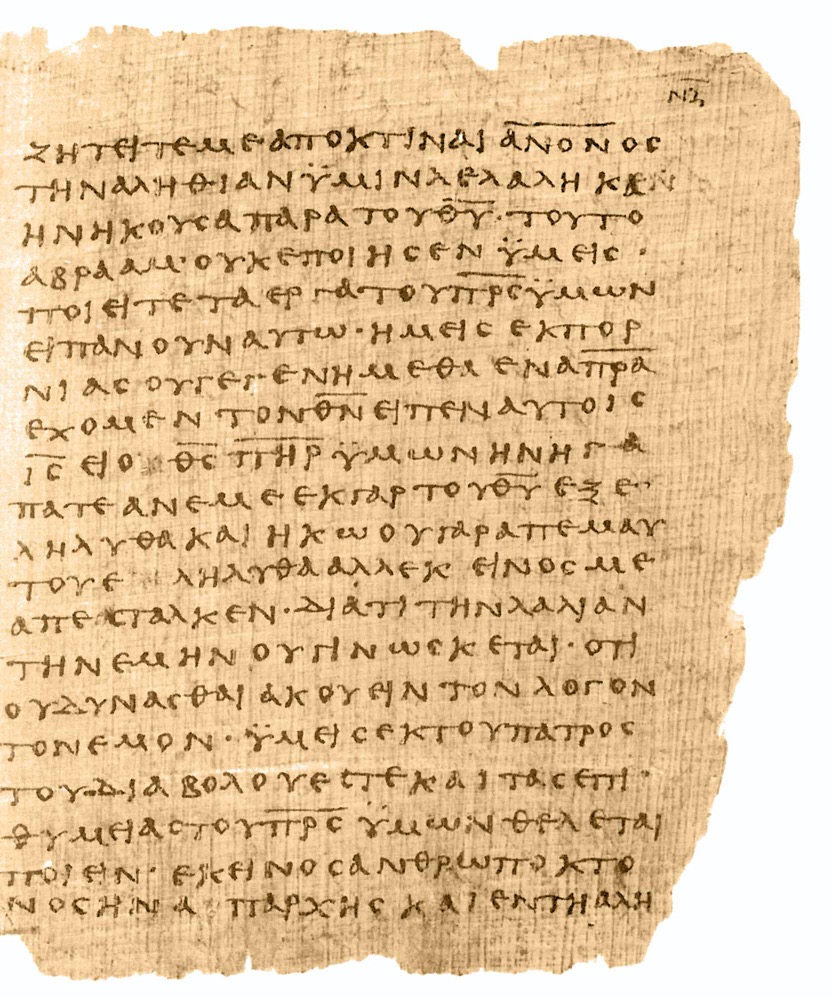 ΝΖ
ΖΗΤΕΙΤΕΜΕΑΠΟΚΤΙΝΑΙ Α̅Ν̅Ο̅Ν̅ΟϹ
ΤΗΝΑΛΗΘΙΑΝΫΜΙΝΛΕΛΑΛΗΚΕΝ
ΗΝΗΚΟΥϹΑΠΑΡΑΤΟΥΘ̅Υ̅·ΤΟΥΤΟ
ΑΒΡΑΑΜ·ΟΥΚΕΠΟΙΗϹΕΝ ΫΜΕΙϹ·
ΠΟΙΕΙΤΕΤΑΕΡΓΑΤΟΥΠ̅Ρ̅Ϲ̅ΫΜΩΝ
ΕΙΠΑΝΟΥΝΑΥΤΩ·ΗΜΕΙϹ ΕΚΠΟΡ
ΝΙΑϹ ΟΥΓΕΓΕΝΗΜΕΘΑ ΕΝΑΠ̅Ρ̅Α̅
ΕΧΟΜΕΝ ΤΟΝΘ̅Ν̅ΕΙΠΕΝΑΥΤΟΙϹ
Ι̅Ϲ̅ ΕΙΟ Θ̅Ϲ̅ Π̅Η̅Ρ̅ ΫΜΩΝΗΝΗΓΑ
ΠΑΤΕΑΝΕΜΕ·ΕΚΓΑΡΤΟΥΘ̅Υ̅ΕΞΕ
ΛΗΛΥΘΑΚΑΙΗΚΩΟΥΓΑΡΑΠΕΜΑΥ
ΤΟΥΕ ΛΗΛΥΘΑΑΛΛΕΚΕΙΝΟϹΜΕ
ΑΠΕϹΤΑΛΚΕΝ·ΔΙΑΤΙΤΗΝΛΑΛΙΑΝ
ΤΗΝΕΜΗΝΟΥΓΙΝΩϹΚΕΤΑΙ·ΟΤΙ
ΟΥΔΥΝΑϹΘΑΙΑΚΟΥΕΙΝΤΟΝΛΟΓΟΝ
ΤΟΝΕΜΟΝ·ΫΜΕΙϹΕΚΤΟΥΠΑΤΡΟϹ
ΤΟΥΔΙΑΒΟΛΟΥΕϹΤΕΚΑΙΤΑϹΕΠΙ·
ΘΥΜΕΙΑϹΤΟΥΠ̅Ρ̅Ϲ̅ ΫΜΩΝΘΕΛΕΤΑΙ
ΠΟΙΕΙΝ·ΕΚΕΙΝΟϹΑΝΘΡΩΠΟΚΤΟ
ΝΟϹΗΝΑΠΑΡΧΗϹΚΑΙΕΝΤΗΑΛΗ